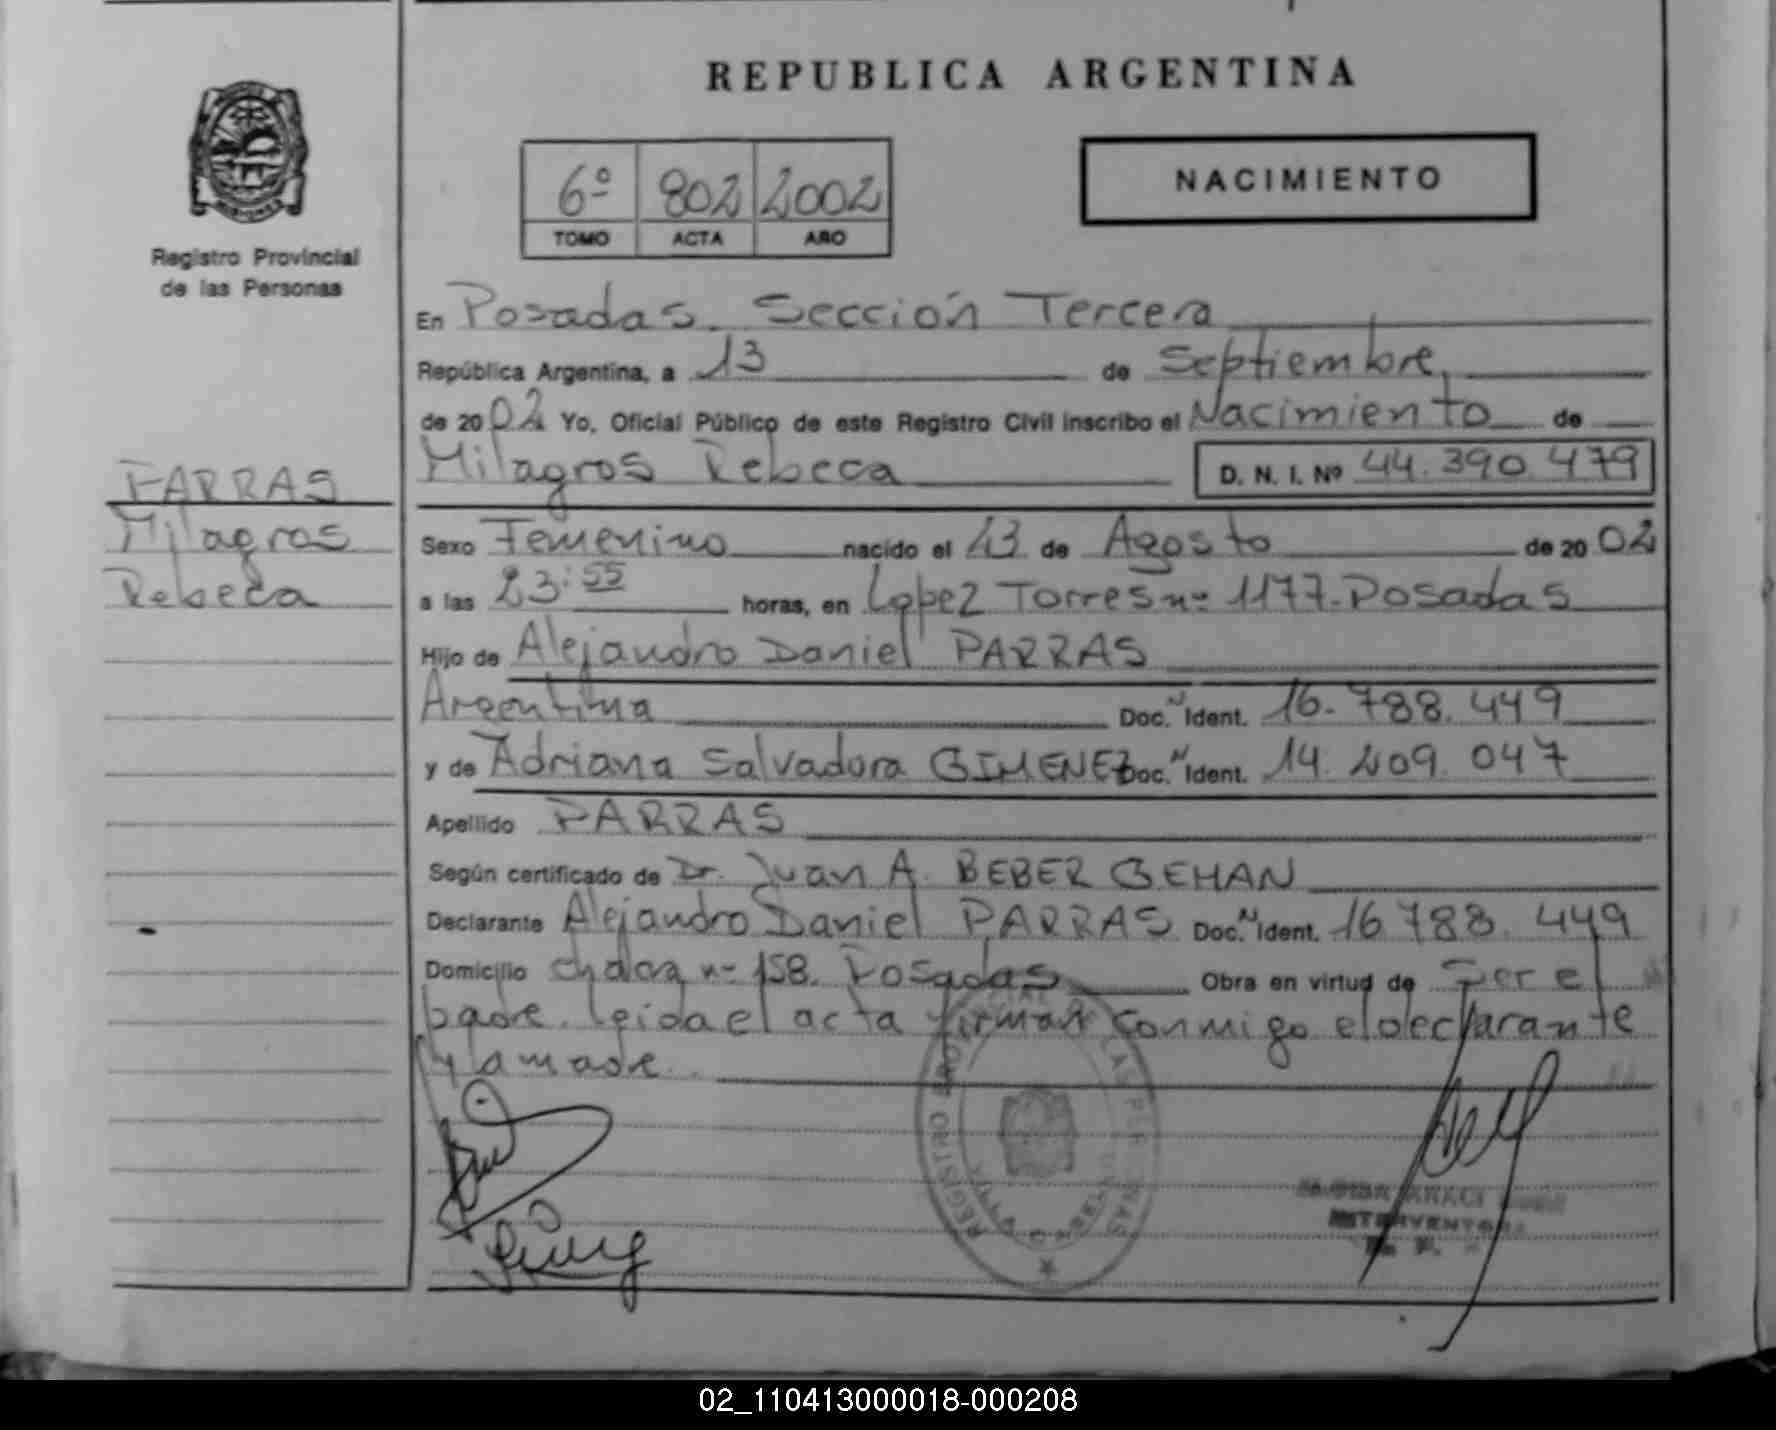 REPUBLICA ARGENTINA
6º 802 2002
TOMO ACTA AÑO
NACIMIENTO
Registro Provincial
de las Personas
PARRAS
Milagros
Rebeca
En Posadas. Sección Tercera
República Argentina, a 13 de Septiembre,
de 2002 Yo, Oficial Público de este Registro Civil inscribo el Nacimiento de
Milagros Rebeca D. N. I. Nº 44.390.479
Sexo Femenino nacido el 23 de Agosto de 2002
a las 23:55 horas, en Lopez Torres nº 1177. Posadas
Hijo de Alejandro Daniel PARRAS
Argentina Doc. N Ident. 16.788.449
y de Adriana Salvadora GIMENEZ Doc. N Ident. 14.209.047
Apellido PARRAS
Según certificado de Dr. Juan A. BEBER GEHAN
Declarante Alejandro Daniel PARRAS Doc. N Ident. 16 788.449
Domicilio nº 158. Posadas Obra en virtud de Ser el
padre. leida el acta firman conmigo el declarante
y la madre.
REGISTRO LAS
INTERVENTORA
02_110413000018-000208